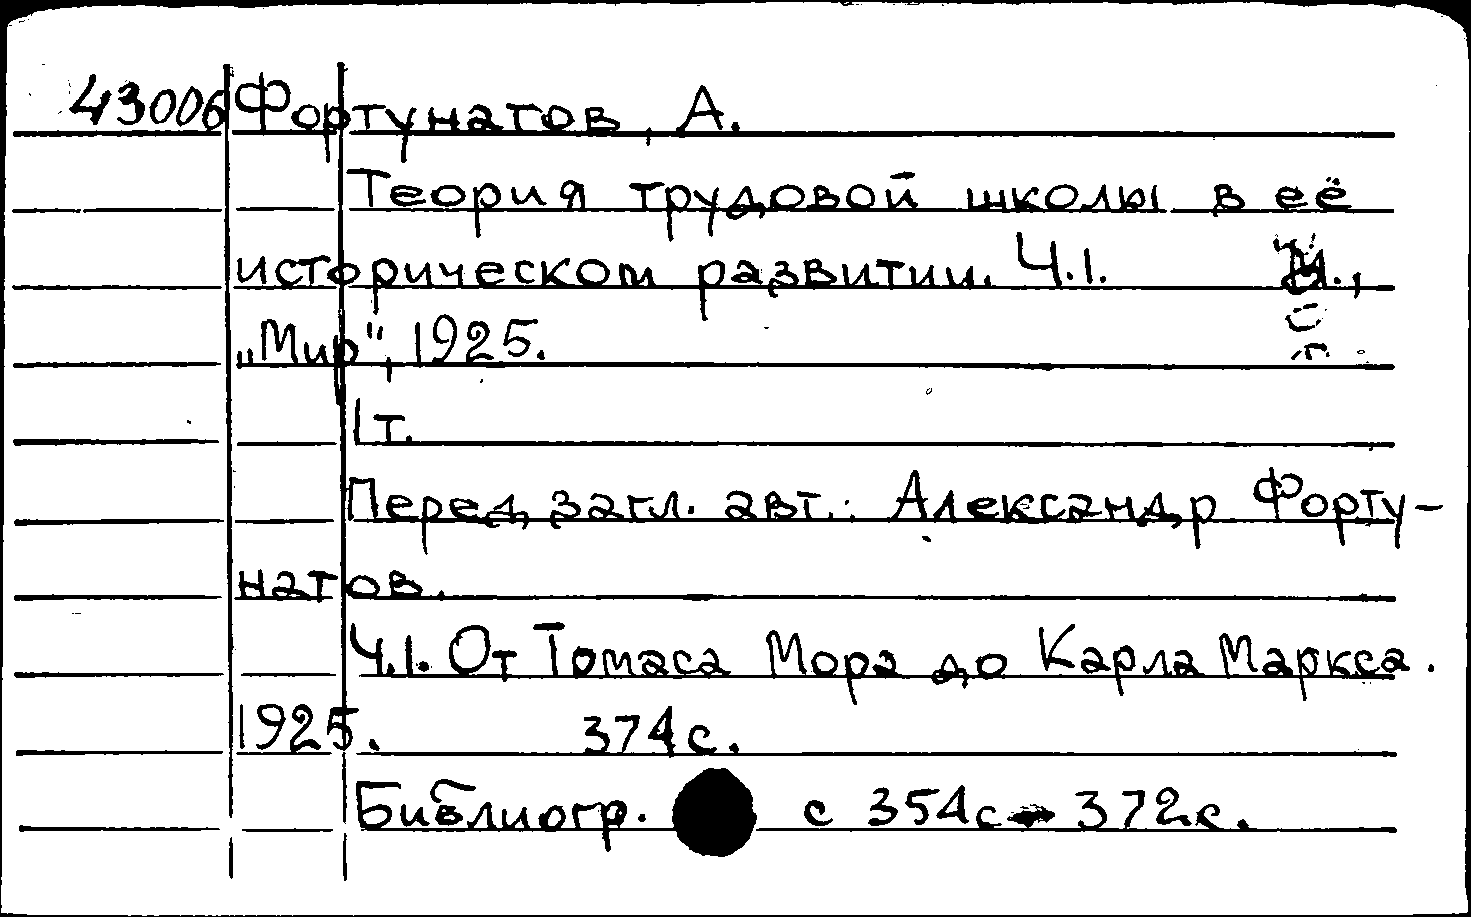 43006 Фортунатов, А.
Теория трудовой школы в её
историческом развитии. Ч.1. М.,
„Мир", 1925.
1т.
Перед загл. авт.: Александр Форту-
натов.
Ч.1. От Томаса Мора до Карла Маркса.
1925. 374с.
Библиогр. с 354с - 372с.